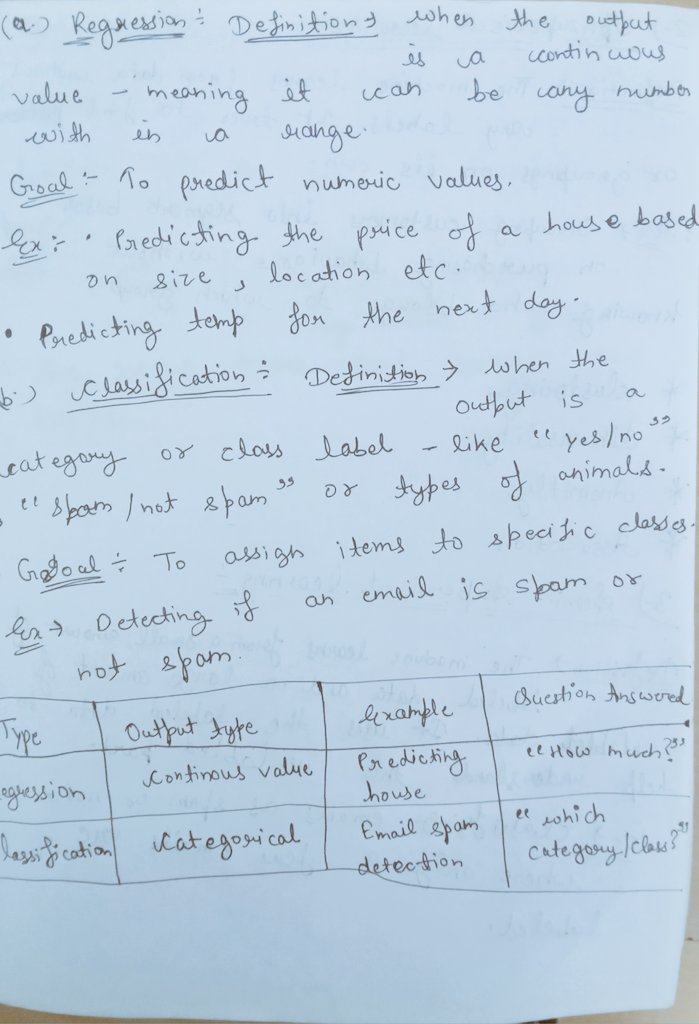 (a.) Regression :- Definition → when the output
is a continuous
value - meaning it can be any number
with in a range.
Goal :- To predict numeric values.
Ex :- • Predicting the price of a house based
on size, location etc.
• Predicting temp for the next day.
b.) Classification :- Definition → when the
output is a
category or class label - like "yes/no"
, "spam/not spam" or types of animals.
Goal :- To assign items to specific classes.
Ex → Detecting if an email is spam or
not spam.
Type Output type Example Question Answered
egression Continous value Predicting house "How much?"
lassification Categorical Email spam detection "which category/class?"